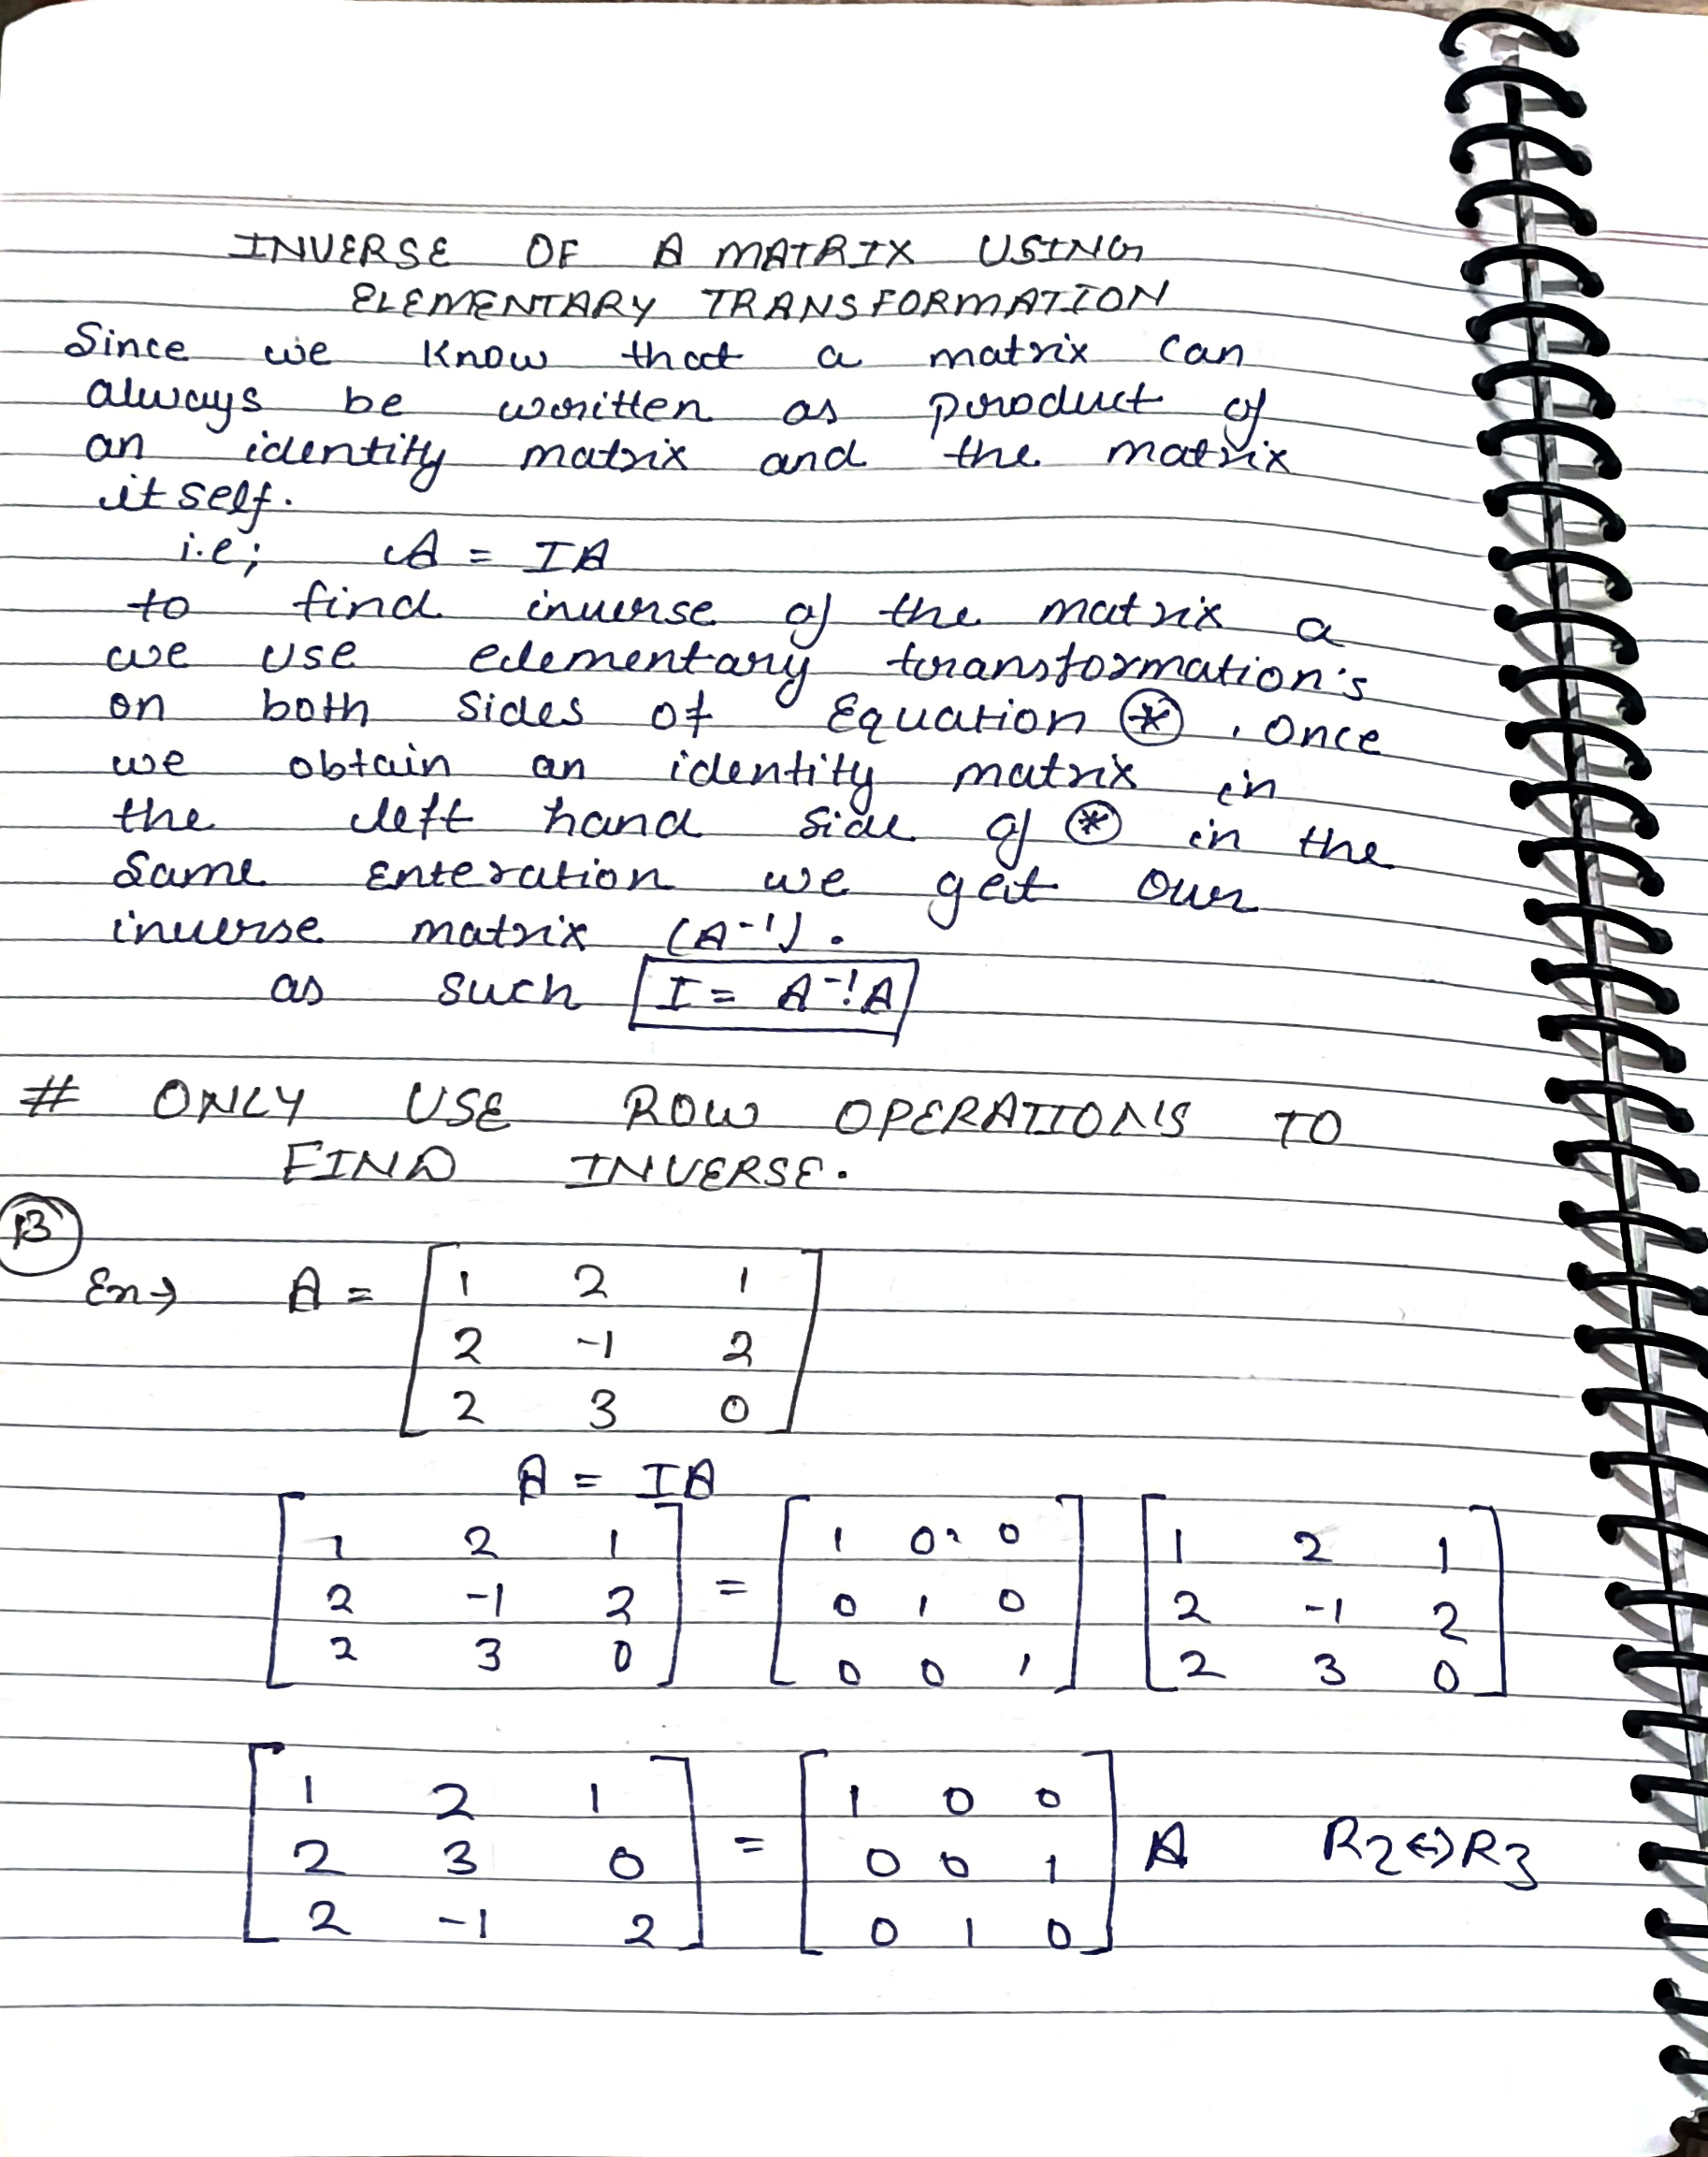 INVERSE OF A MATRIX USING
ELEMENTARY TRANSFORMATION
Since we know that a matrix can
always be written as product of
an identity matrix and the matrix
itself.
i.e; A = IA
to find inverse of the matrix a
we use elementary transformation's
on both sides of Equation ⊛ . Once
we obtain an identity matrix in
the left hand side of ⊛ in the
same enteration we get our
inverse matrix (A⁻¹).
as such I = A⁻¹A
# ONLY USE ROW OPERATIONS TO
FIND INVERSE.
13
Ex→ A = [ 1 2 1
2 -1 2
2 3 0 ]
A = IA
[ 1 2 1 [ 1 0 0 [ 1 2 1
2 -1 2 = 0 1 0 2 -1 2
2 3 0 ] 0 0 1 ] 2 3 0 ]
[ 1 2 1 [ 1 0 0
2 3 0 = 0 0 1 A R2↔R3
2 -1 2 ] 0 1 0 ]